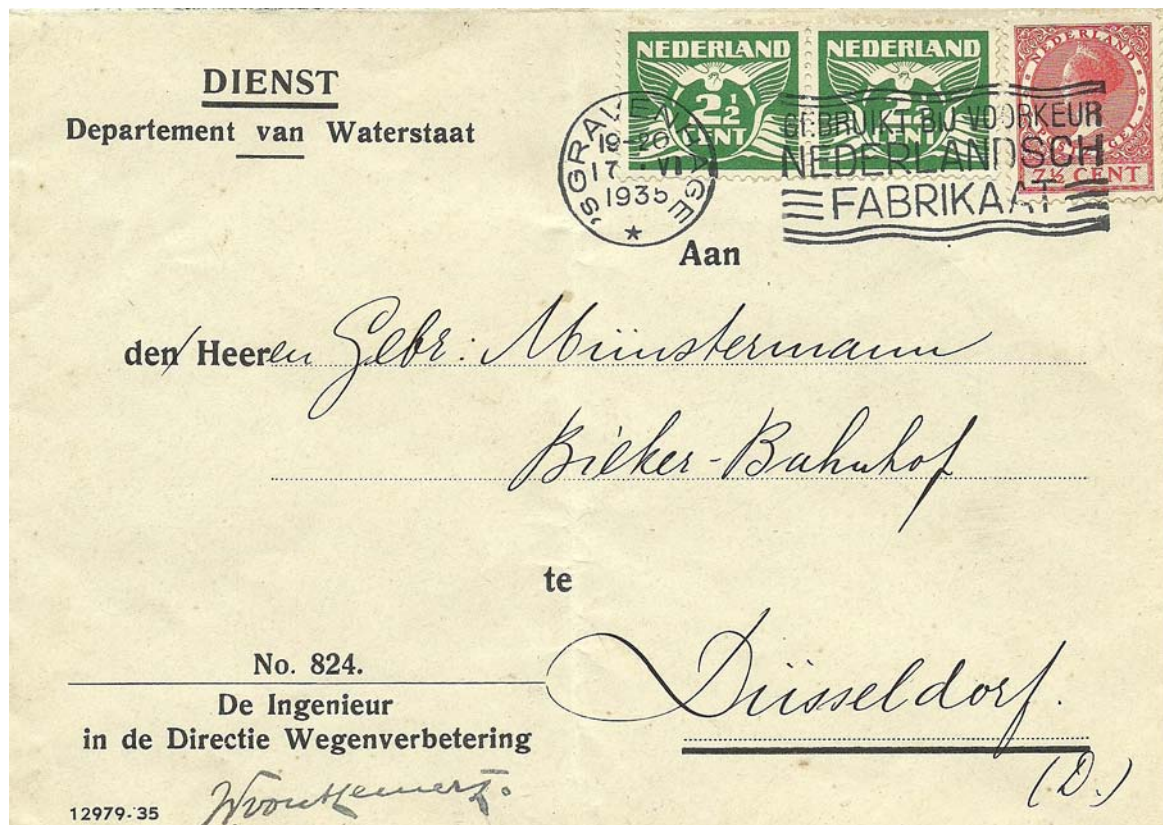 DIENST
Departement van Waterstaat
NEDERLAND
2½
CENT
NEDERLAND
2½
CENT
NEDERLAND
7½ CENT
'SGRAVENHAGE
19-20
17 VI
1935
GEBRUIKT BIJ VOORKEUR
NEDERLANDSCH
FABRIKAAT
Aan
den Heeren Gebr: Münstermann
Bilker-Bahnhof
te
Düsseldorf.
(D.)
No. 824.
De Ingenieur
in de Directie Wegenverbetering
12979-'35